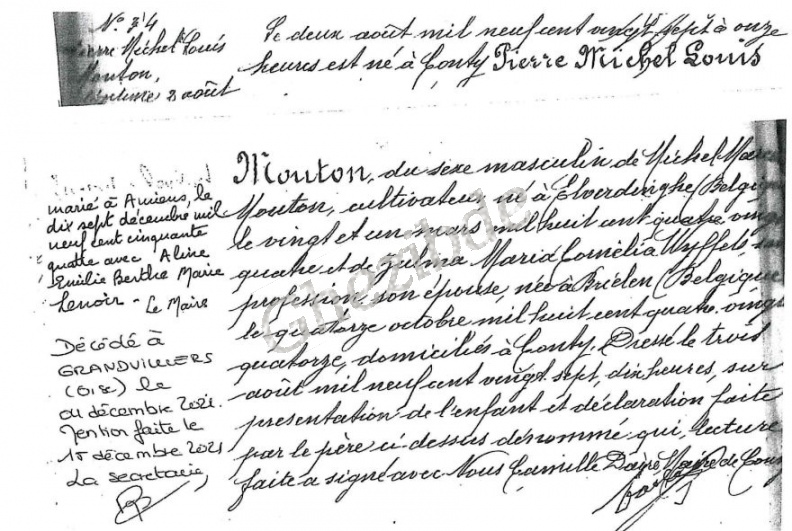 N° 34
Pierre Michel Louis
Mouton,
2 août
Le deux août mil neuf cent vingt sept à onze
heures est né à Conty Pierre Michel Louis
marié à Amiens, le
dix sept décembre mil
neuf cent cinquante
quatre avec Aline
Emilie Berthe Marie
Lenoir - Le Maire
Décédé à
GRANDVILLIERS
(Oise) le
04 décembre 2021.
Mention faite le
15 décembre 2021
La secrétaire,
Mouton, du sexe masculin de Michel
Mouton, cultivateur, né à Elverdinghe (Belgique
le vingt et un mars mil huit cent quatre vingt
quatre et de Zulma Maria Cornélia Wyffels, sans
profession, son épouse, née à Brielen (Belgique
le quatorze octobre mil huit cent quatre vingt
quatorze, domiciliés à Conty. Dressé le trois
août mil neuf cent vingt sept, dix heures, sur
présentation de l'enfant et déclaration faite
par le père ci-dessus dénommé qui, lecture
faite a signé avec Nous Camille Daire Maire de Conty
Ghezabde